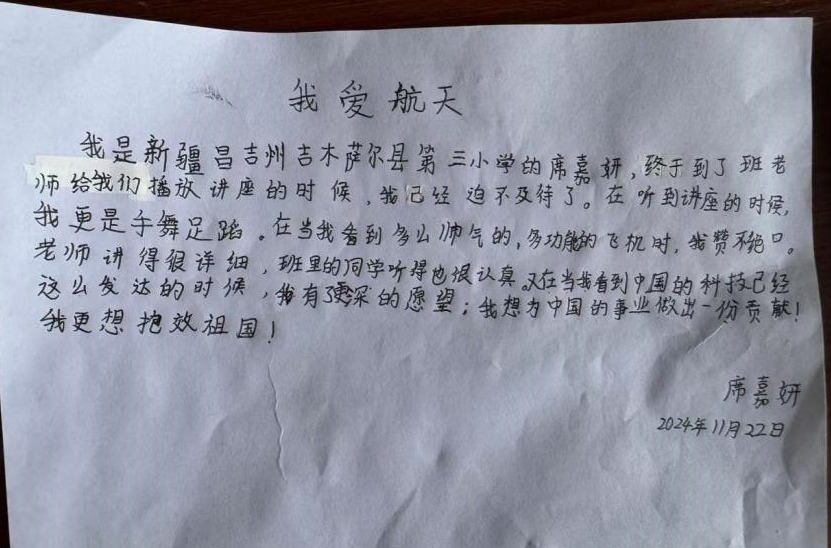 我爱航天
我是新疆昌吉州吉木萨尔县第三小学的席嘉妍,终于到了班老
师给我们播放讲座的时候,我已经迫不及待了。在听到讲座的时候,
我更是手舞足蹈。在当我看到多么帅气的,多功能的飞机时,我赞不绝口。
老师讲得很详细,班里的同学听得也很认真。又在当我看到中国的科技已经
这么发达的时候,我有了更深的愿望;我想为中国的事业做出一份贡献!
我更想抱效祖国!
席嘉妍
2024年11月22日